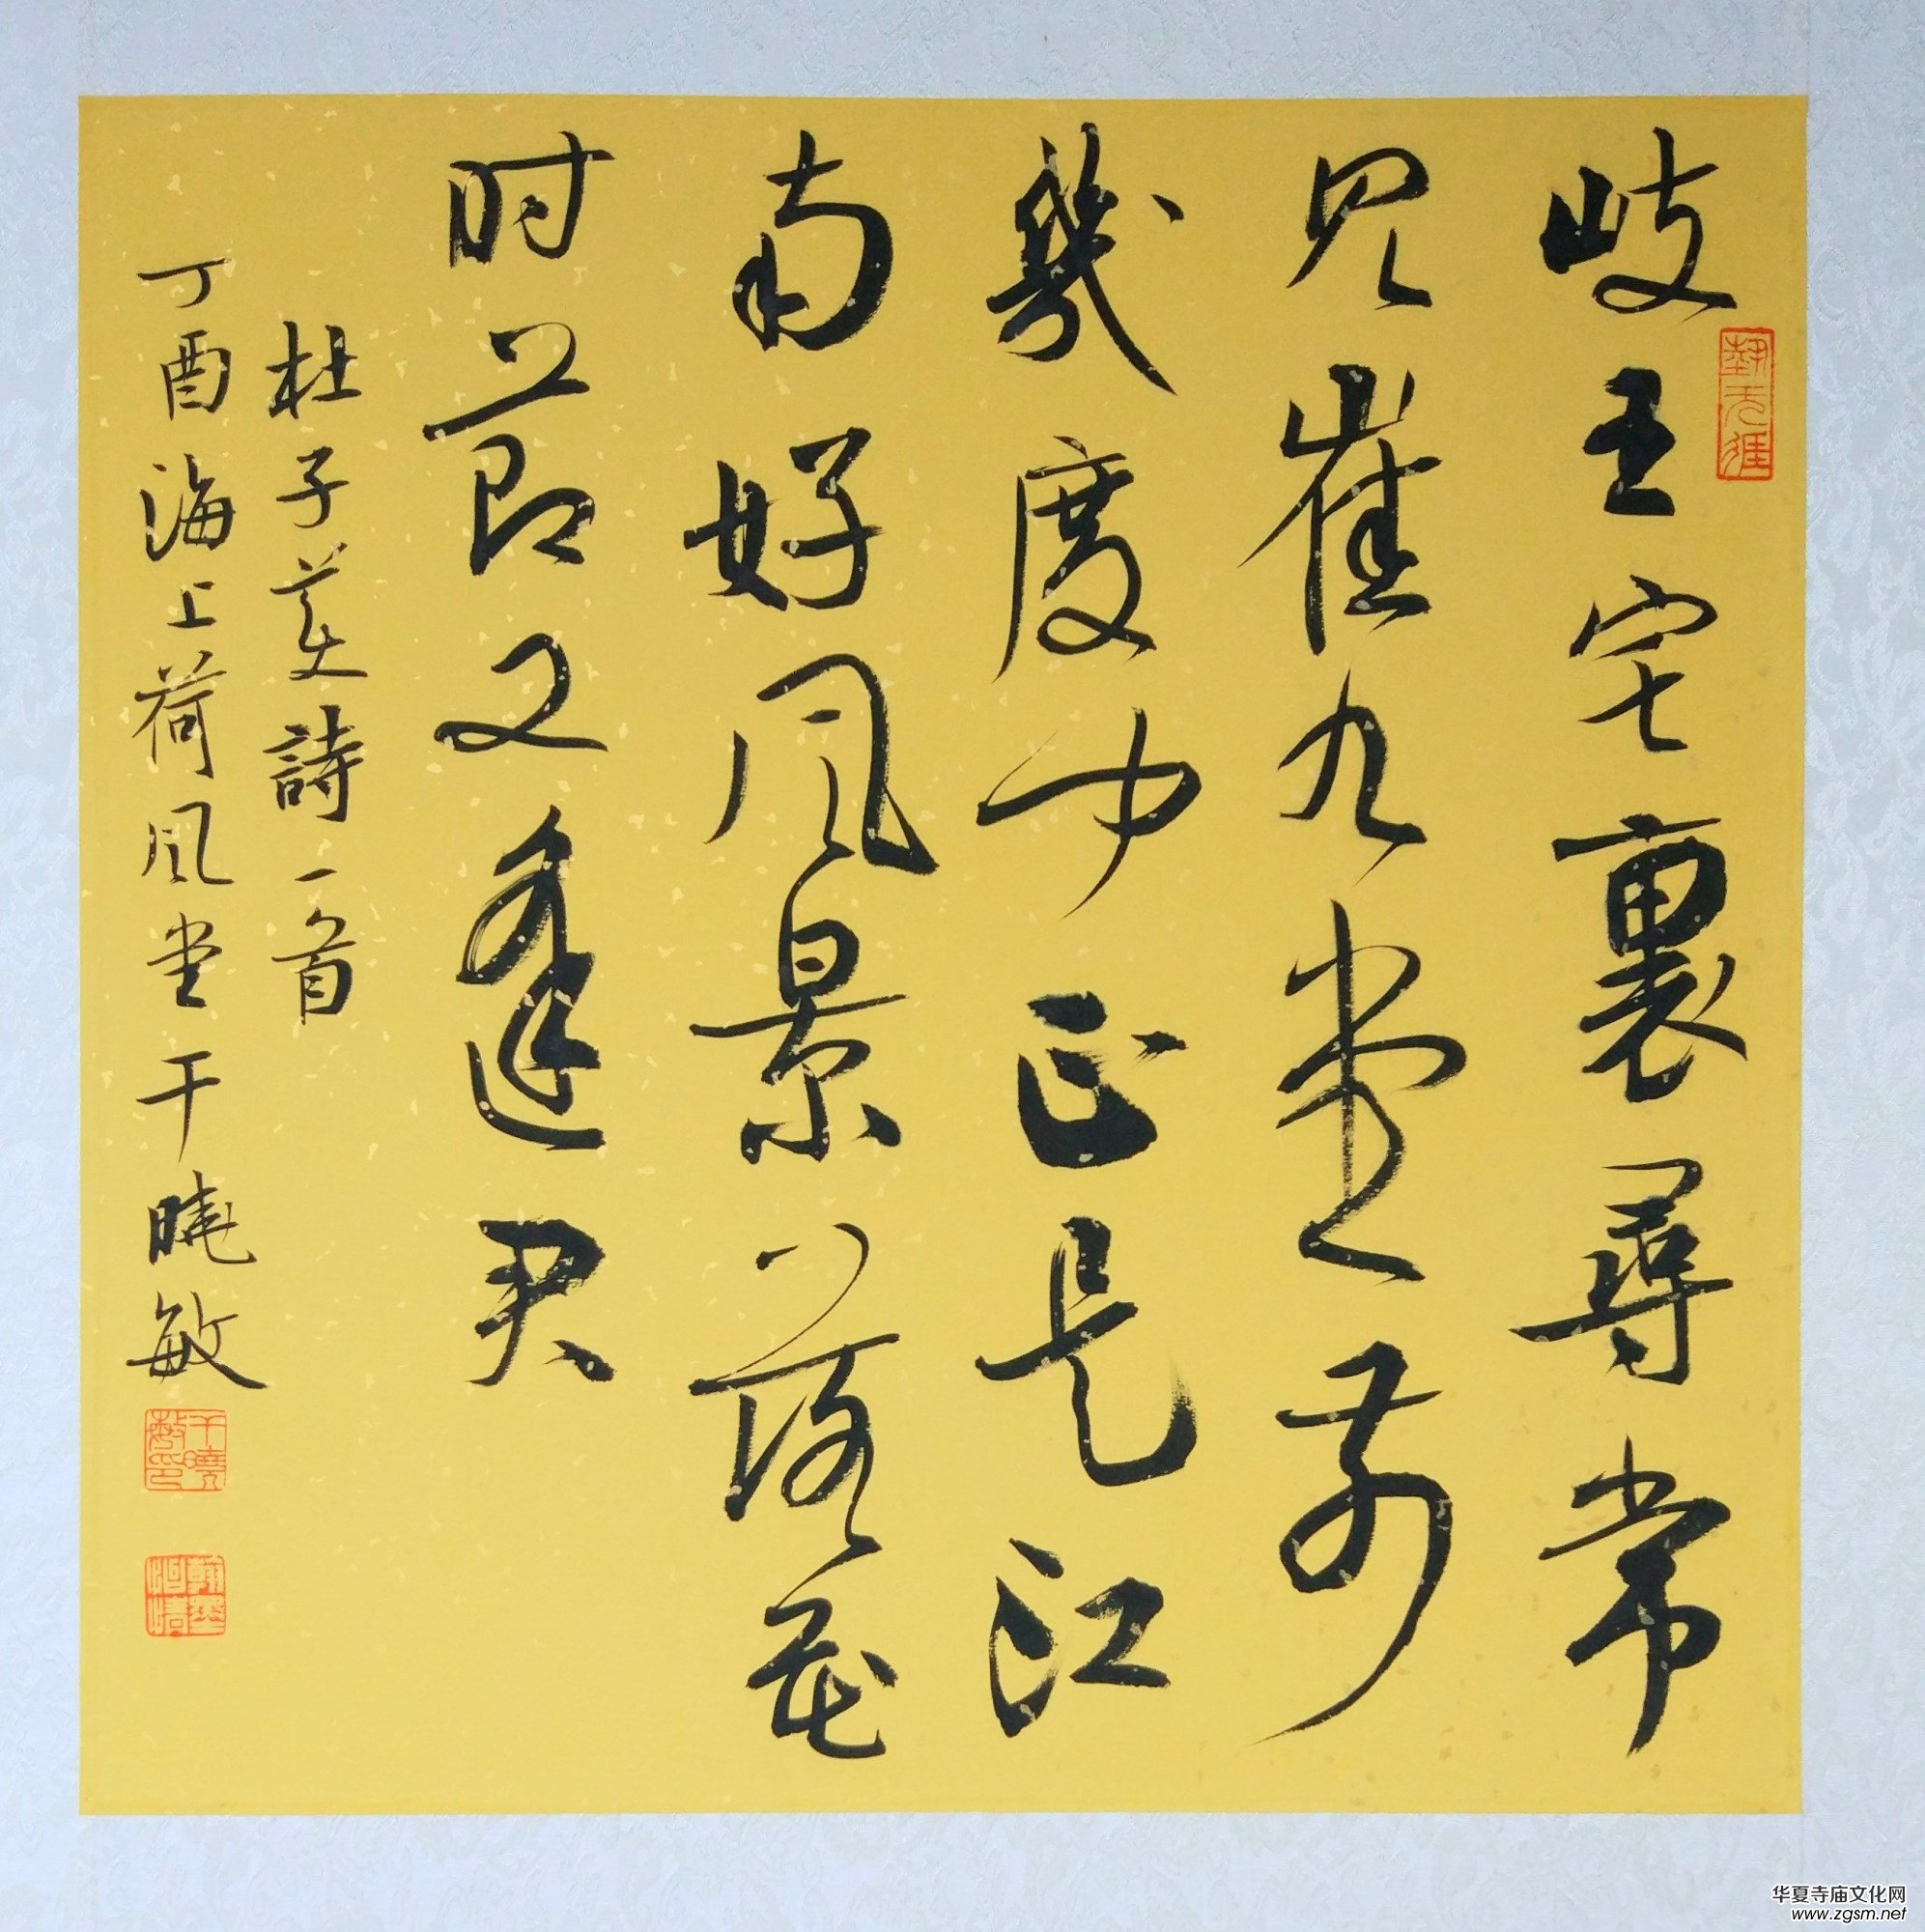 岐王宅裏尋常
見崔九堂前
幾度闻正是江
南好风景落花
时節又逢君
杜子美詩一首
丁酉海上荷风堂干晓敏
干曉敏印
华夏寺庙文化网
www.zgsm.net